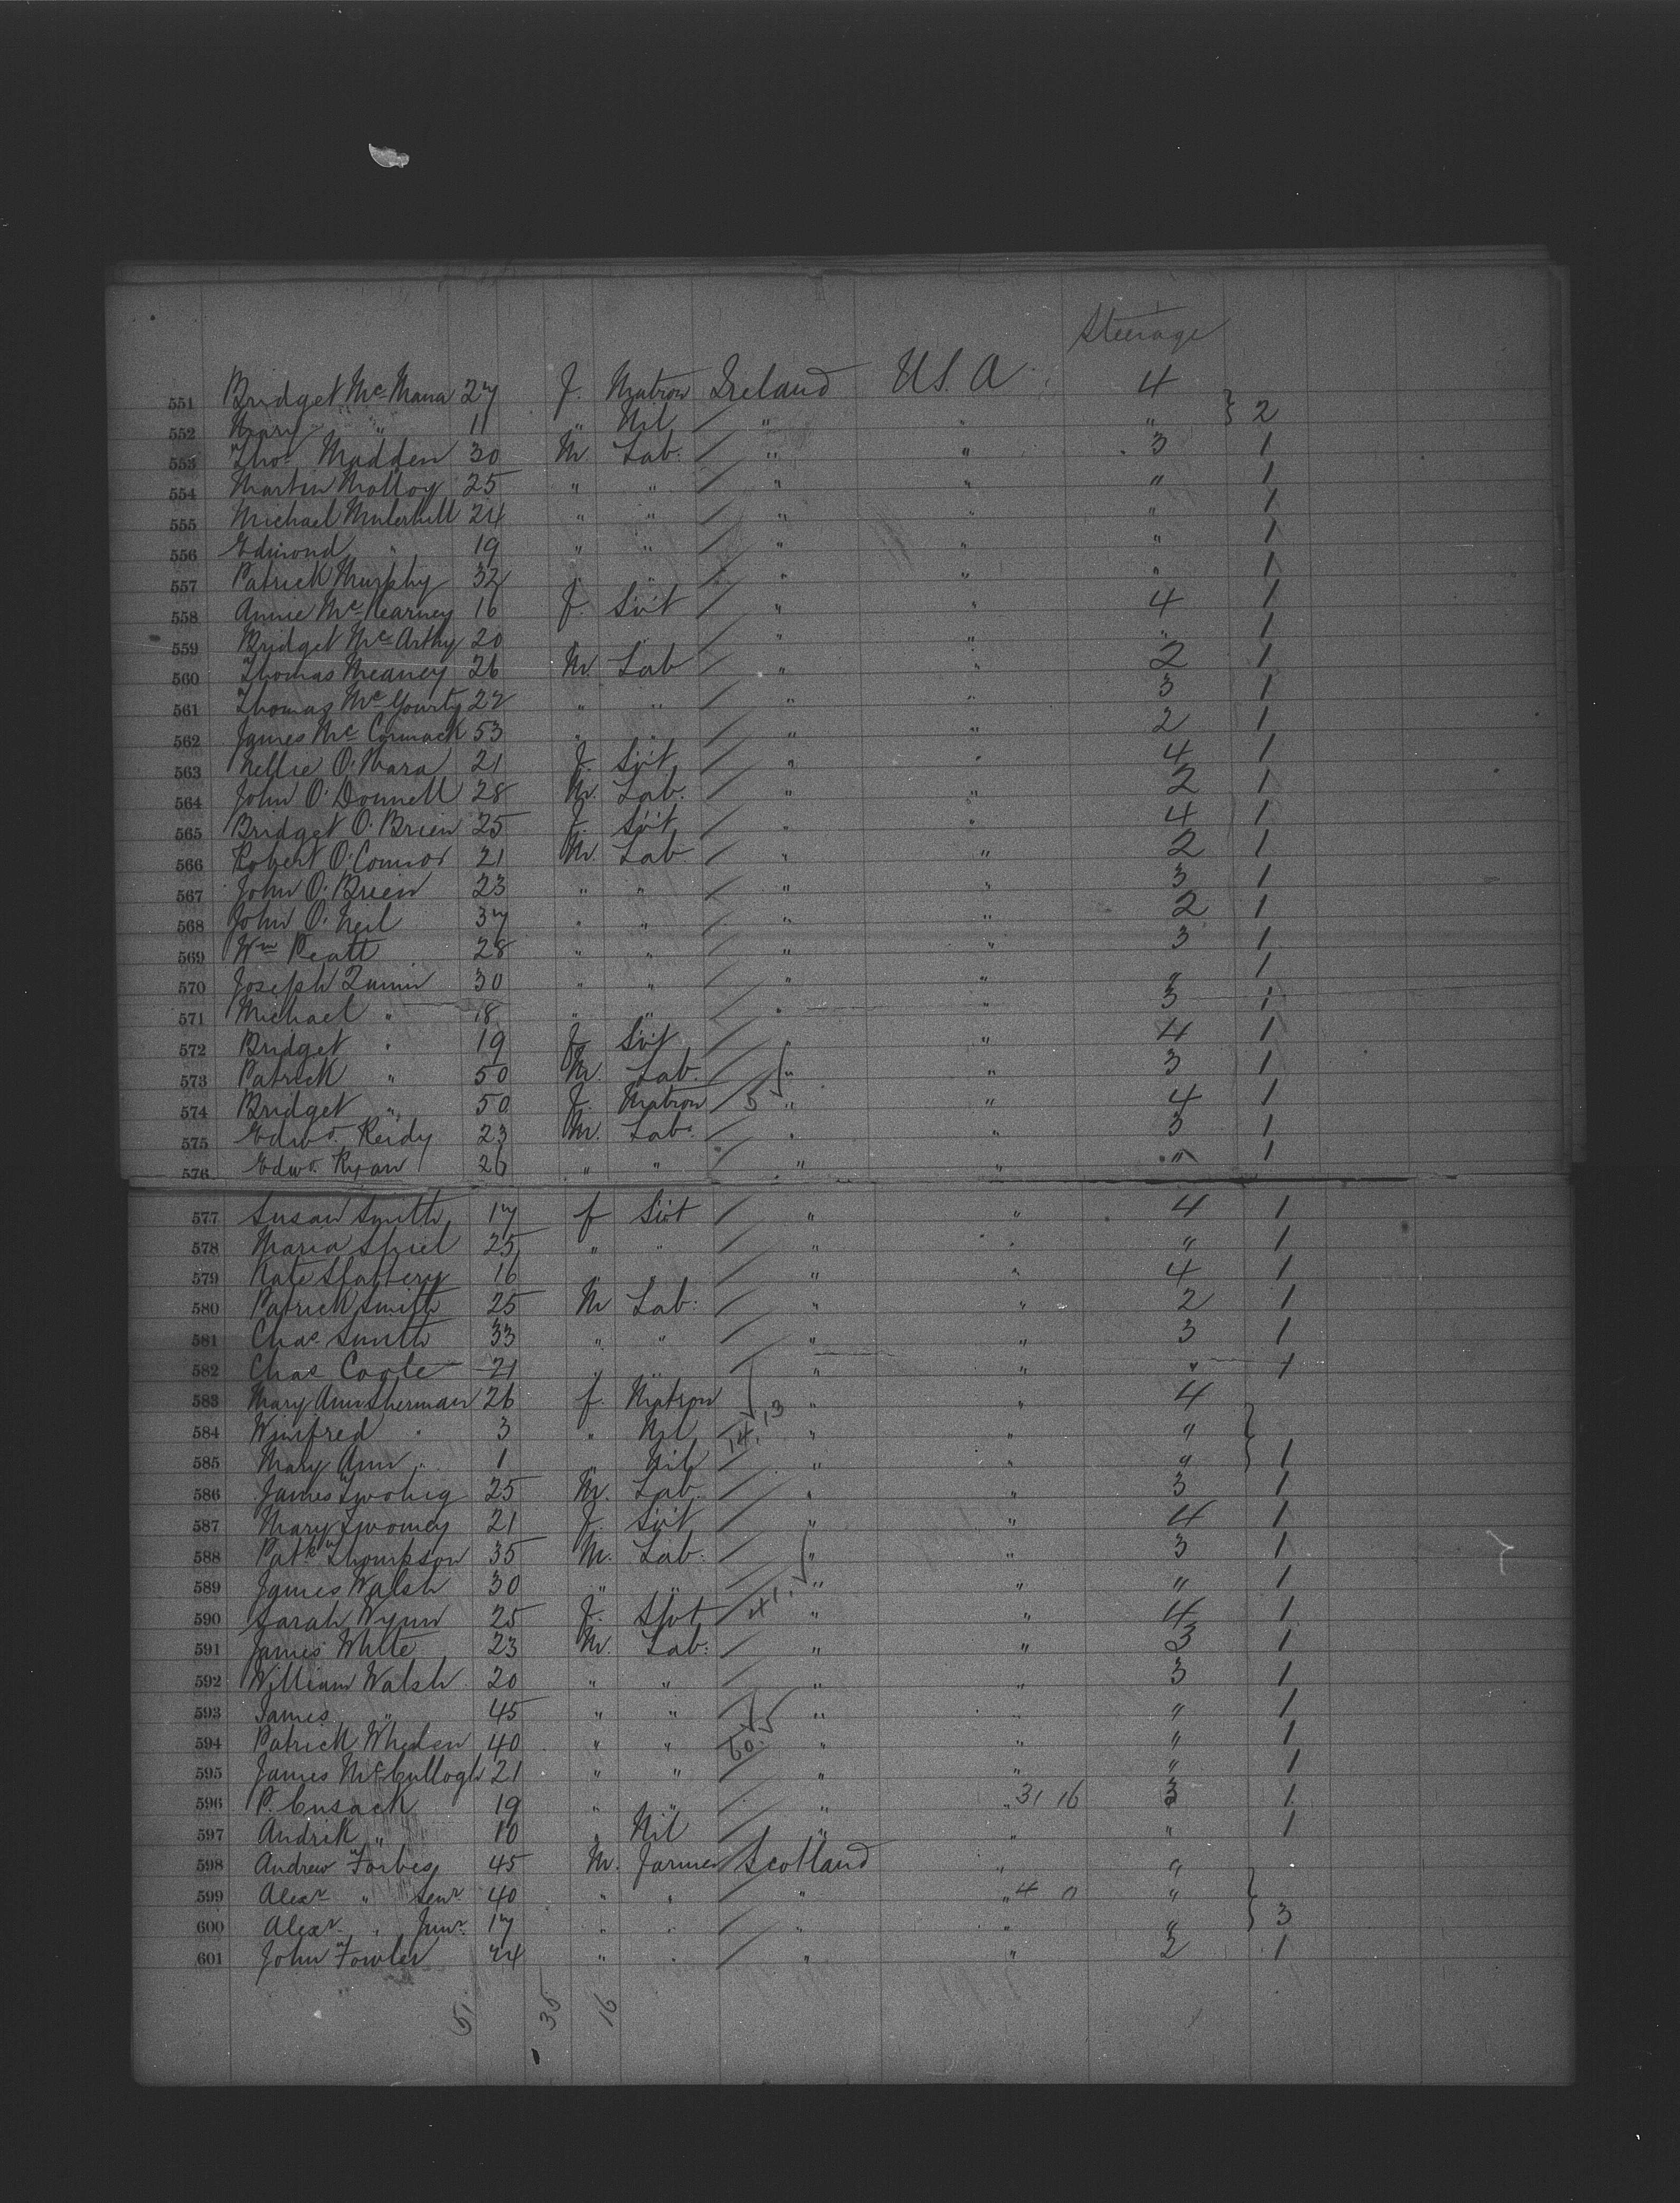 Steerage
551 Bridget Mc Mara 27 F. Matron Ireland U.S.A. 4
552 Mary " 11 " Nil / " " " } 2
553 Thos Madden 30 M Lab. / " " 3 1
554 Martin Molloy 25 " " / " " " 1
555 Michael Mulerhill 24 " " / " " " 1
556 Edmond " 19 " " / " " " 1
557 Patrick Murphy 32 " " / " " " 1
558 Annie Mc Kearney 16 f. Svt / " " 4 1
559 Bridget Mc Arthy 20 " " / " " " 1
560 Thomas Meaney 26 M. Lab / " " 2 1
561 Thomas Mc Gourty 22 " " / " " 3 1
562 James Mc Cormack 53 " " / " " 2 1
563 Nellie O'Mara 21 F. Svt / " " 4 1
564 John O'Donnell 28 M. Lab. / " " 2 1
565 Bridget O'Brien 25 F. Svt / " " 4 1
566 Robert O'Connor 21 M. Lab / " " 2 1
567 John O'Brien 23 " " / " " 3 1
568 John O'Neil 37 " " / " " 2 1
569 Wm Peatt 28 " " / " " 3 1
570 Joseph Quinn 30 " " / " " " 1
571 Michael " 18 " " / " " 3 1
572 Bridget " 19 F Svt / " " 4 1
573 Patrick " 50 M. Lab. / " " 3 1
574 Bridget " 50 F. Matron / 5 " " 4 1
575 Edwd. Reidy 23 M. Lab. / " " 3 1
576 Edwd. Ryan 26 " " / " " " 1
577 Susan Smith 17 f Svt / " " 4 1
578 Maria Shiel 25 " " / " " " 1
579 Kate Slattery 16 " " / " " 4 1
580 Patrick Smith 25 M Lab. / " " 2 1
581 Chas Smith 33 " " / " " 3 1
582 Chas Coote 21 " " / " " " 1
583 Mary Ann Sherman 26 f. Matron " " 4
584 Winifred " 3 " Nil 14.13 " " "
585 Mary Ann " 1 " Nil / " " " } 1
586 James Twohig 25 M. Lab. / " " 3 1
587 Mary Twomey 21 F. Svt / " " 4 1
588 Patk Thompson 35 M. Lab. / " " 3 1
589 James Walsh 30 " " / " " " 1
590 Sarah Wynn 25 F. Svt / 41 " " 4 1
591 James White 23 M. Lab. / " " 3 1
592 William Walsh 20 " " / " " 3 1
593 James " 45 " " / " " " 1
594 Patrick Whelen 40 " " 60 " " " 1
595 James McCullogh 21 " " / " " " 1
596 P. Cusack 19 " " / " " 31 16 3 1
597 Andrik " 10 " Nil / " " " 1
598 Andrew Forbes 45 M. Farmer Scotland " "
599 Alexr " Senr 40 " " / " " 4 0 "
600 Alexr " Junr 17 " " / " " " } 3
601 John Fowler 24 " " / " " 2 1
51 35 16